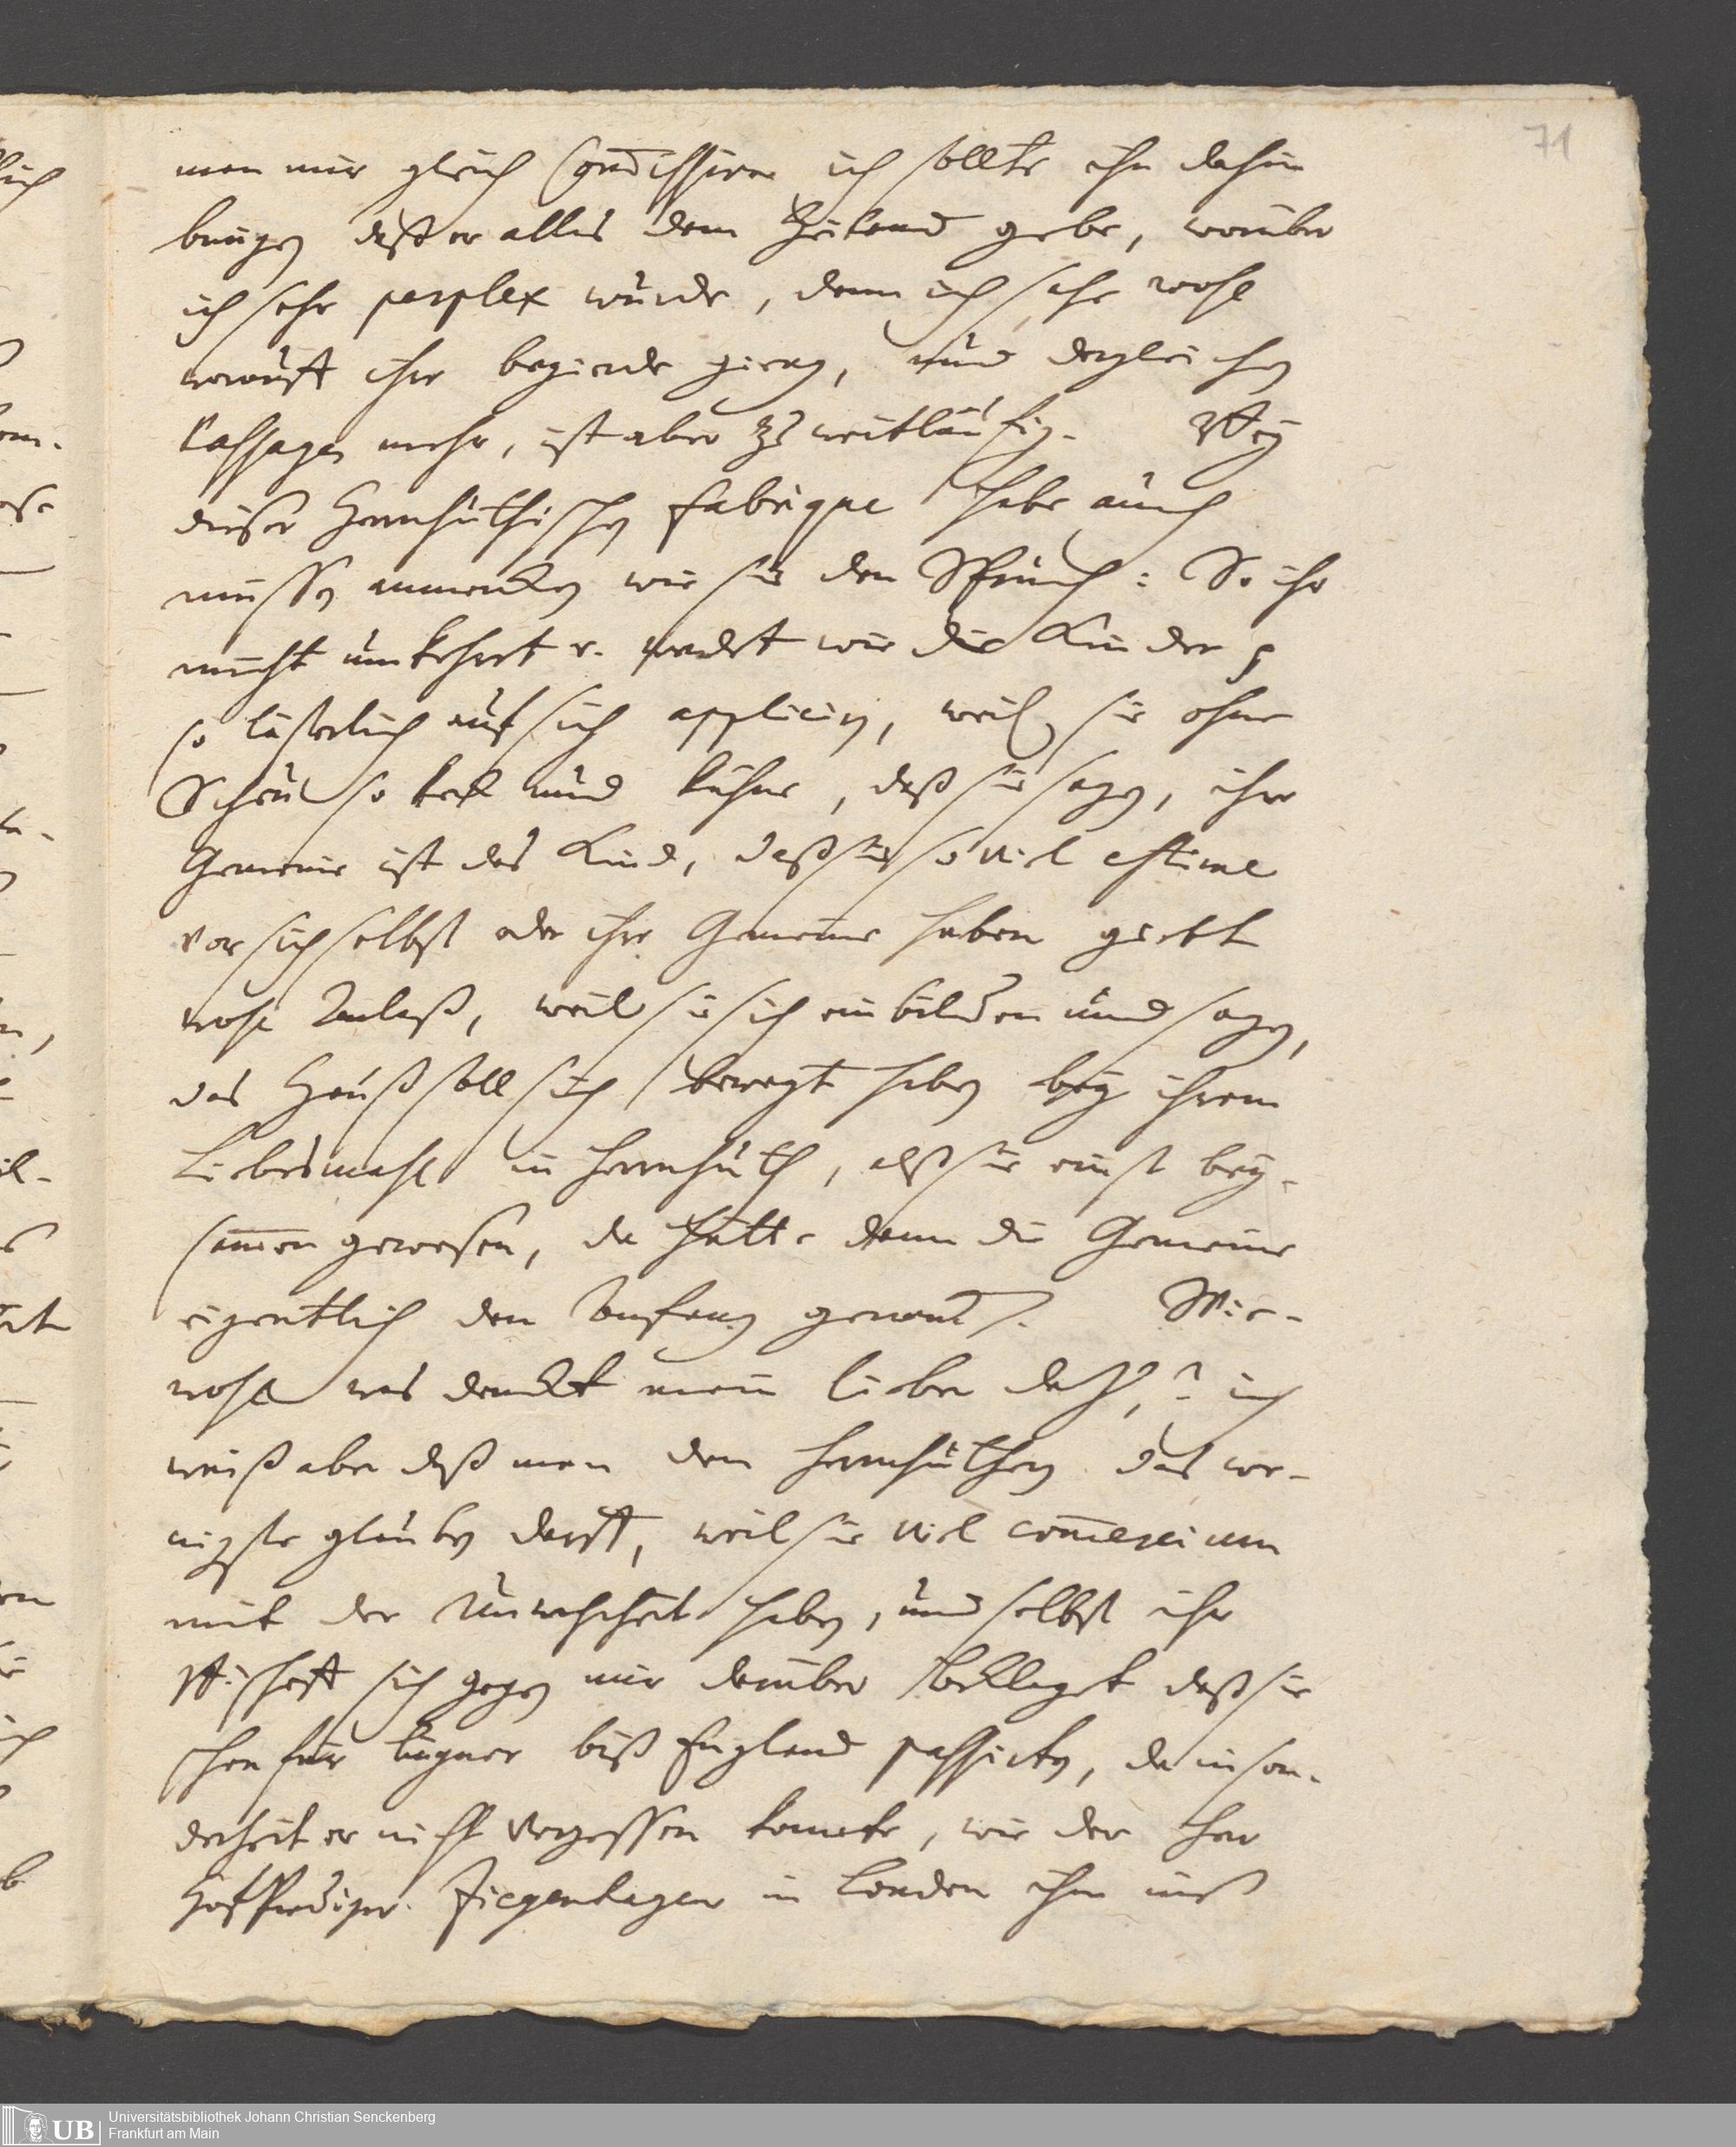 71
man mir gleich ich sollte ihn dahin
bringen daß er alles dem Heiland gebe, worüber
ich sehr perplex wurde, denn ich sehr wohl
worauf ihre begierde gieng, und dergleichen
Passagen mehr, ist aber zu weitläufig. Bey
dieser Herrnhuthischen Fabrique habe auch
müssen anmercken wie sie den Spruch: So ihr
nicht umkehret u. werdet wie die Kinder p
so lästerlich auf sich appliciren, weil sie ohne
Scheu so keck und kühne, daß sie sagen, ihre
Gemeine ist das Kind, daß sie so viel estime
vor sich selbst oder ihre Gemeine haben giebt
wohl Anlaß, weil sie sich einbilden und sagen,
das Hauß soll sich bewegt haben bey ihrem
Liebesmahl in Herrnhuth, alß sie einst bey-
sam̅en gewesen, da hätte denn die Gemeine
eigentlich den Anfang genom̅en. Wie-
wohl was denckt mein lieber ? ich
weiß aber daß man den Herrnhuthern das we-
nigste glauben darff, weil sie viel com̅ercium
mit der Unwahrheit haben, und selbst ihr
sich gegen mir darüber beklaget daß sie
schon für Lügner biß Engeland passirten, da inson-
derheit er nicht vergessen konnte, wie der Herr
HoffPrediger Ziegenhagen in London ihm
Universitätsbibliothek Johann Christian Senckenberg
Frankfurt am Main